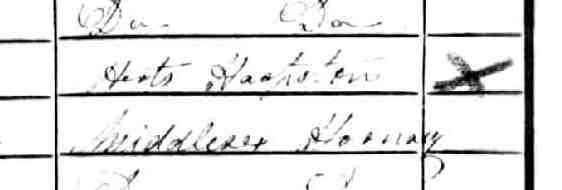 Do Do
Herts Hapston
Middlesex Hornsey